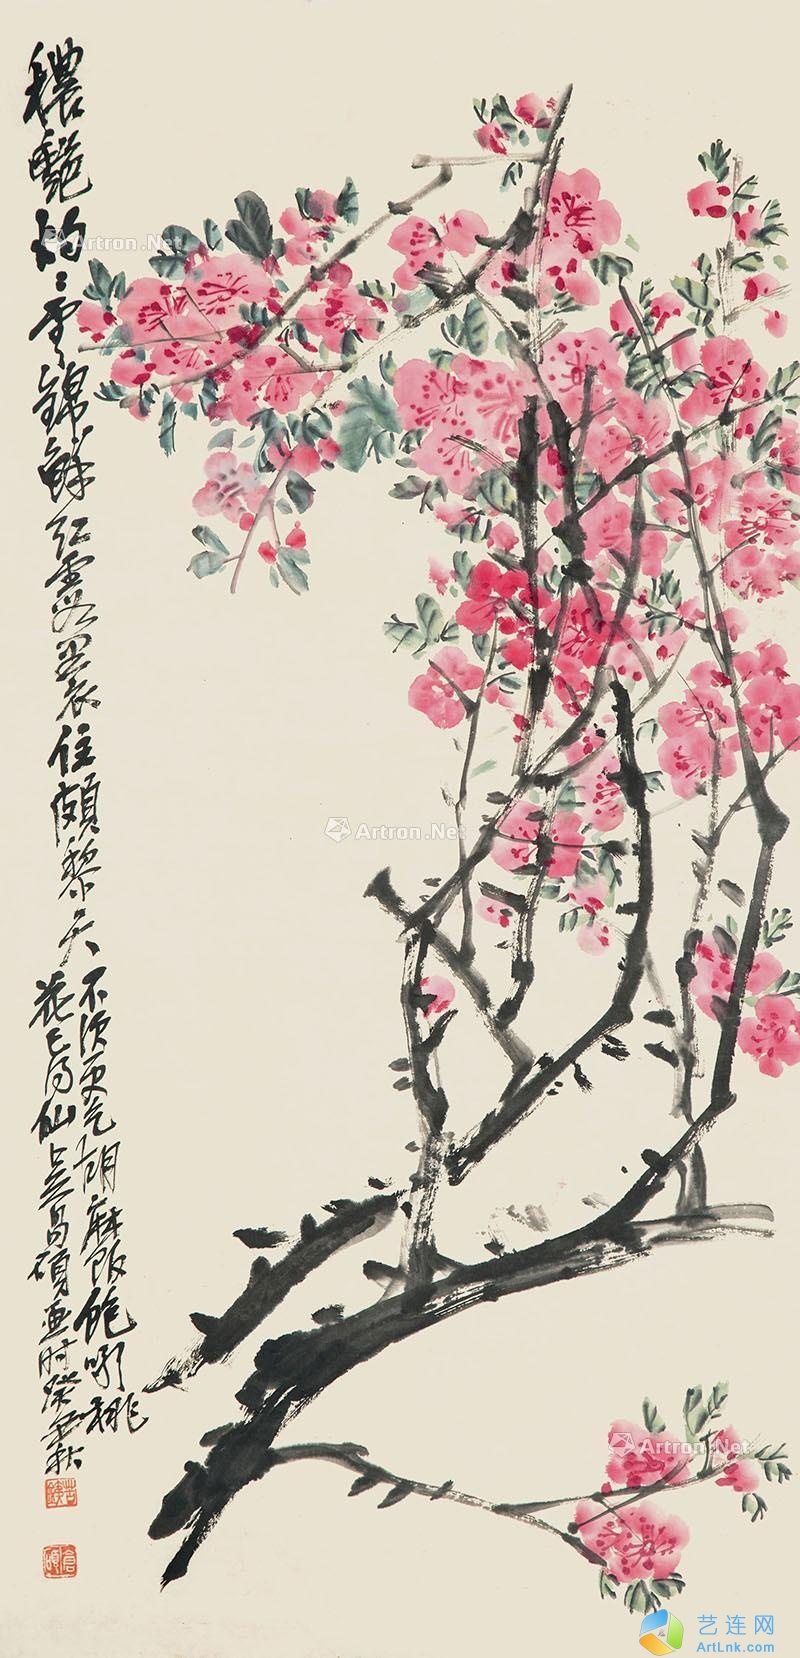 穠艷灼〻雲錦鮮紅霞裹住頗黎天
不須更乞胡麻飯飽啖桃
花已得仙吳昌碩畫時癸丑秋
苦鐵
倉碩
Artron.Net
Artron.Net
Artron.Net
艺连网
ArtLnk.com